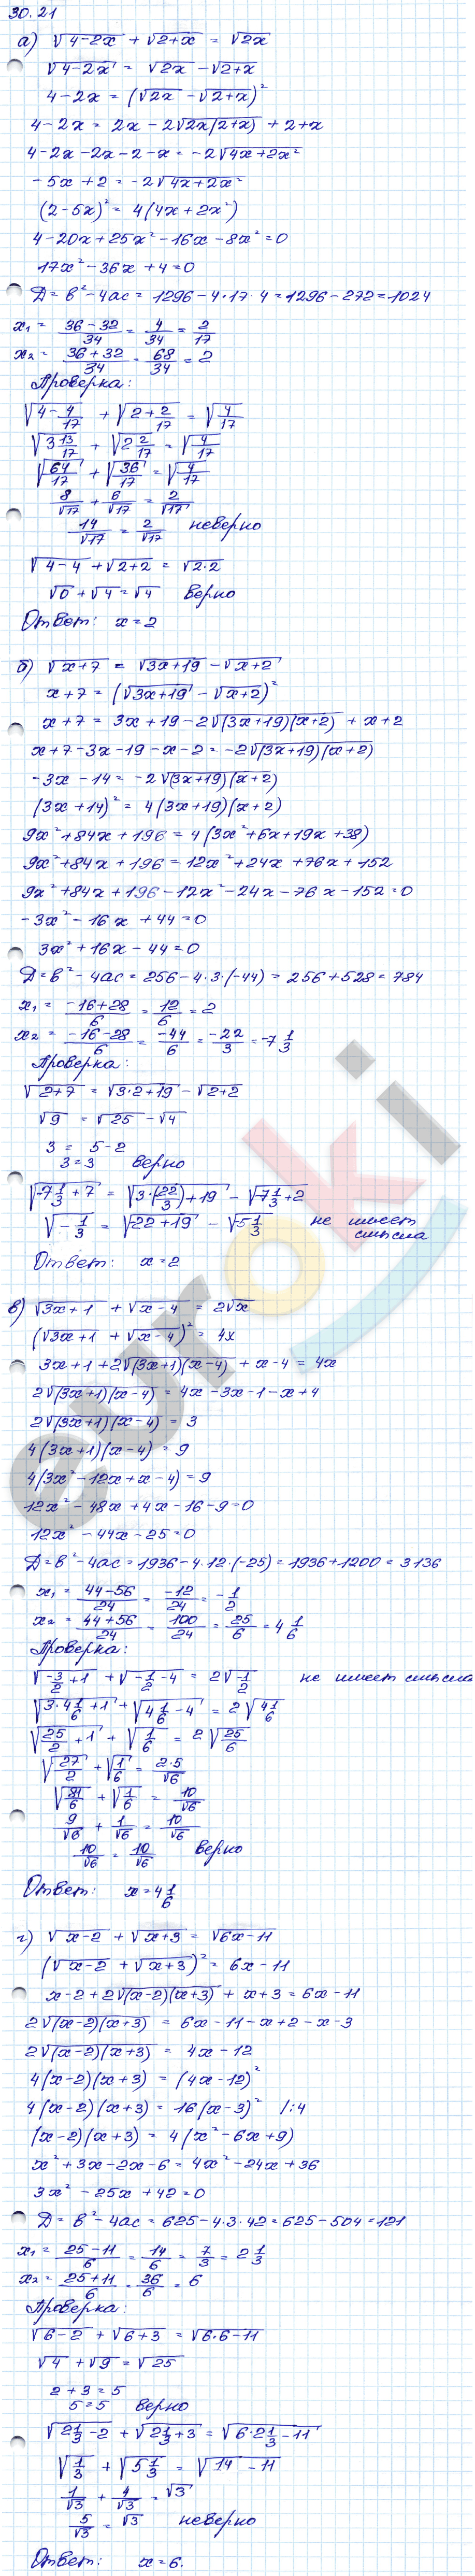 30.21
а) √(4-2x) + √(2+x) = √(2x)
√(4-2x) = √(2x) - √(2+x)
4-2x = (√(2x) - √(2+x))²
4-2x = 2x - 2√(2x(2+x)) + 2+x
4-2x-2x-2-x = -2√(4x+2x²)
-5x+2 = -2√(4x+2x²)
(2-5x)² = 4(4x+2x²)
4-20x+25x²-16x-8x²=0
17x²-36x+4=0
D=b²-4ac = 1296-4·17·4=1296-272=1024
x₁ = (36-32)/34 = 4/34 = 2/17
x₂ = (36+32)/34 = 68/34 = 2
Проверка:
√(4-4/17) + √(2+2/17) = √(4/17)
√(3 13/17) + √(2 2/17) = √(4/17)
√(64/17) + √(36/17) = √(4/17)
8/√17 + 6/√17 = 2/√17
14/√17 = 2/√17 неверно
√(4-4) + √(2+2) = √(2·2)
√0 + √4 = √4 верно
Ответ: x=2
б) √(x+7) = √(3x+19) - √(x+2)
x+7 = (√(3x+19) - √(x+2))²
x+7 = 3x+19-2√((3x+19)(x+2)) + x+2
x+7-3x-19-x-2=-2√((3x+19)(x+2))
-3x-14=-2√((3x+19)(x+2))
(3x+14)² = 4(3x+19)(x+2)
9x²+84x+196=4(3x²+6x+19x+38)
9x²+84x+196=12x²+24x+76x+152
9x²+84x+196-12x²-24x-76x-152=0
-3x²-16x+44=0
3x²+16x-44=0
D=b²-4ac=256-4·3·(-44)=256+528=784
x₁ = (-16+28)/6 = 12/6 = 2
x₂ = (-16-28)/6 = -44/6 = -22/3 = -7 1/3
Проверка:
√(2+7) = √(3·2+19) - √(2+2)
√9 = √25 - √4
3 = 5-2
3=3 верно
√(-7 1/3 + 7) = √(3·(22/3)+19) - √(-7 1/3 + 2)
√(-1/3) = √(-22+19) - √(-5 1/3) не имеет смысла
Ответ: x=2
в) √(3x+1) + √(x-4) = 2√x
(√(3x+1) + √(x-4))² = 4x
3x+1+2√((3x+1)(x-4)) + x-4 = 4x
2√((3x+1)(x-4)) = 4x-3x-1-x+4
2√((3x+1)(x-4)) = 3
4(3x+1)(x-4) = 9
4(3x²-12x+x-4)=9
12x²-48x+4x-16-9=0
12x²-44x-25=0
D=b²-4ac=1936-4·12·(-25)=1936+1200=3136
x₁ = (44-56)/24 = -12/24 = -1/2
x₂ = (44+56)/24 = 100/24 = 25/6 = 4 1/6
Проверка:
√(-3/2+1) + √(-1/2-4) = 2√(-1/2) не имеет смысла
√(3·4 1/6+1) + √(4 1/6-4) = 2√(4 1/6)
√(25/2+1) + √(1/6) = 2√(25/6)
√(27/2) + √(1/6) = 2·5/√6
√(81/6) + √(1/6) = 10/√6
9/√6 + 1/√6 = 10/√6
10/√6 = 10/√6 верно
Ответ: x=4 1/6
г) √(x-2) + √(x+3) = √(6x-11)
(√(x-2) + √(x+3))² = 6x-11
x-2+2√((x-2)(x+3)) + x+3=6x-11
2√((x-2)(x+3)) = 6x-11-x+2-x-3
2√((x-2)(x+3)) = 4x-12
4(x-2)(x+3) = (4x-12)²
4(x-2)(x+3) = 16(x-3)² /:4
(x-2)(x+3) = 4(x²-6x+9)
x²+3x-2x-6=4x²-24x+36
3x²-25x+42=0
D=b²-4ac=625-4·3·42=625-504=121
x₁ = (25-11)/6 = 14/6 = 7/3 = 2 1/3
x₂ = (25+11)/6 = 36/6 = 6
Проверка:
√(6-2) + √(6+3) = √(6·6-11)
√4 + √9 = √25
2+3=5
5=5 верно
√(2 1/3-2) + √(2 1/3+3) = √(6·2 1/3-11)
√(1/3) + √(5 1/3) = √(14-11)
1/√3 + 4/√3 = √3
5/√3 = √3 неверно
Ответ: x=6.
euroki